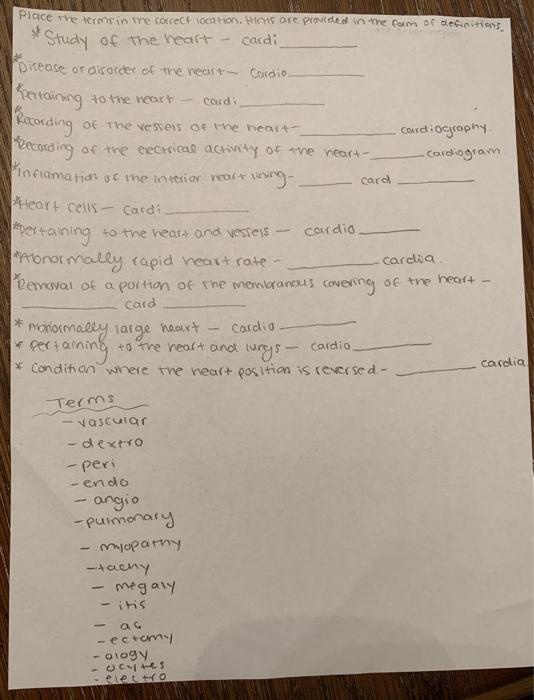 Place the terms in the correct location. Hints are provided in the form of definitions.
* Study of the heart - cardi________
* Disease or disorder of the heart- Cardio________
* Pertaining to the heart - cardi________
* Recording of the vessels of the heart- ________ cardiography.
* Recording of the electrical activity of the heart- ________cardiogram
* Inflamation of the interior heart lining- ________ card ________
* Heart cells - Cardi________
* Pertaining to the heart and vessels - cardio________
* Abnormally rapid heart rate - ________cardia.
* Removal of a portion of the membranous covering of the heart -
________ card ________
* Abnormally large heart - cardio________
* Pertaining to the heart and lungs - cardio________
* Condition where the heart position is reversed.- ________ cardia
Terms
- vascular
- dextro
- peri
- endo
- angio
- pulmonary
- myopathy
- tachy
- megaly
- itis
- ac
- ectomy
- ology
- ocytes
- electro